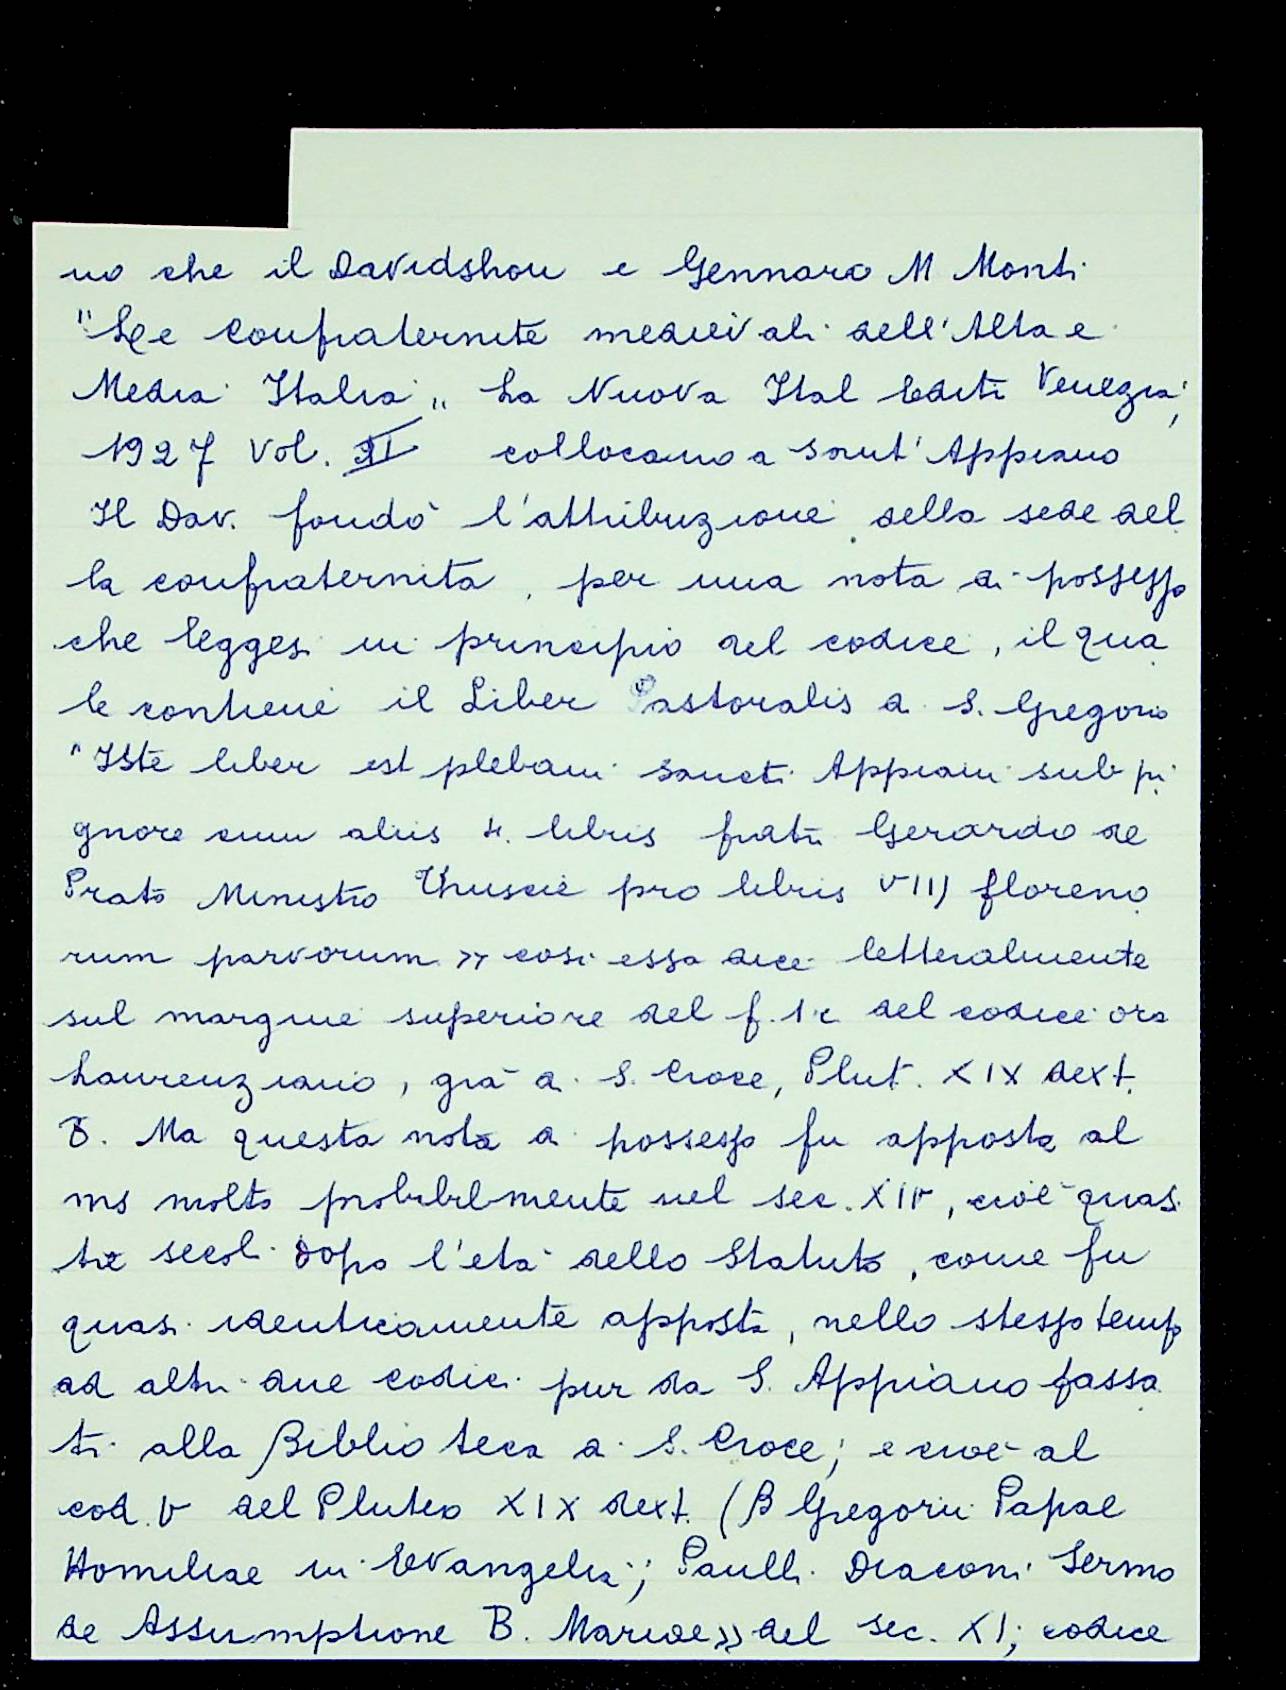 no che il Davidshon e Gennaro M Monti
"Le confraternite medievali dell'Alta e
Media Italia" La Nuova Ital Edit. Venezia,
1927 Vol. II collocano a Sant'Appiano
Il Dav. fondò l'attribuzione della sede del
la confraternita, per una nota di possesso
che leggesi in principio del codice, il qua
le contiene il Liber Pastoralis di S. Gregorio
"Iste liber est plebani Sancti Appiani sub pi
gnore cum aliis 4. libris fratri Gerardo de
Prato Ministro Thuscie pro libris VIII floreno
rum parvorum» così essa dice letteralmente
sul margine superiore del f. 1r del codice ora
Laurenziano, già di S. Croce, Plut. XIX dext.
8. Ma questa nota di possesso fu apposta al
ms molto probabilmente nel sec. XIV, cioè quasi
tre secoli dopo l'età dello Statuto, come fu
quasi identicamente apposta, nello stesso temp
ad altri due codici pur da S. Appiano passa
ti alla Biblioteca di S. Croce; e cioè al
cod. V del Pluteo XIX dext. (B Gregorii Papae
Homiliae in Evangelia; Paulli Diaconi Sermo
de Assumptione B. Mariae» del sec. XI; codice